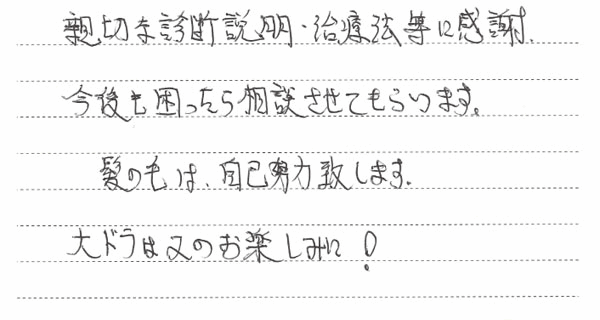 親切な診断説明・治療法等に感謝.
今後も困ったら相談させてもらいます。
髪の毛は、自己努力致します.
大ドラは又のお楽しみに!